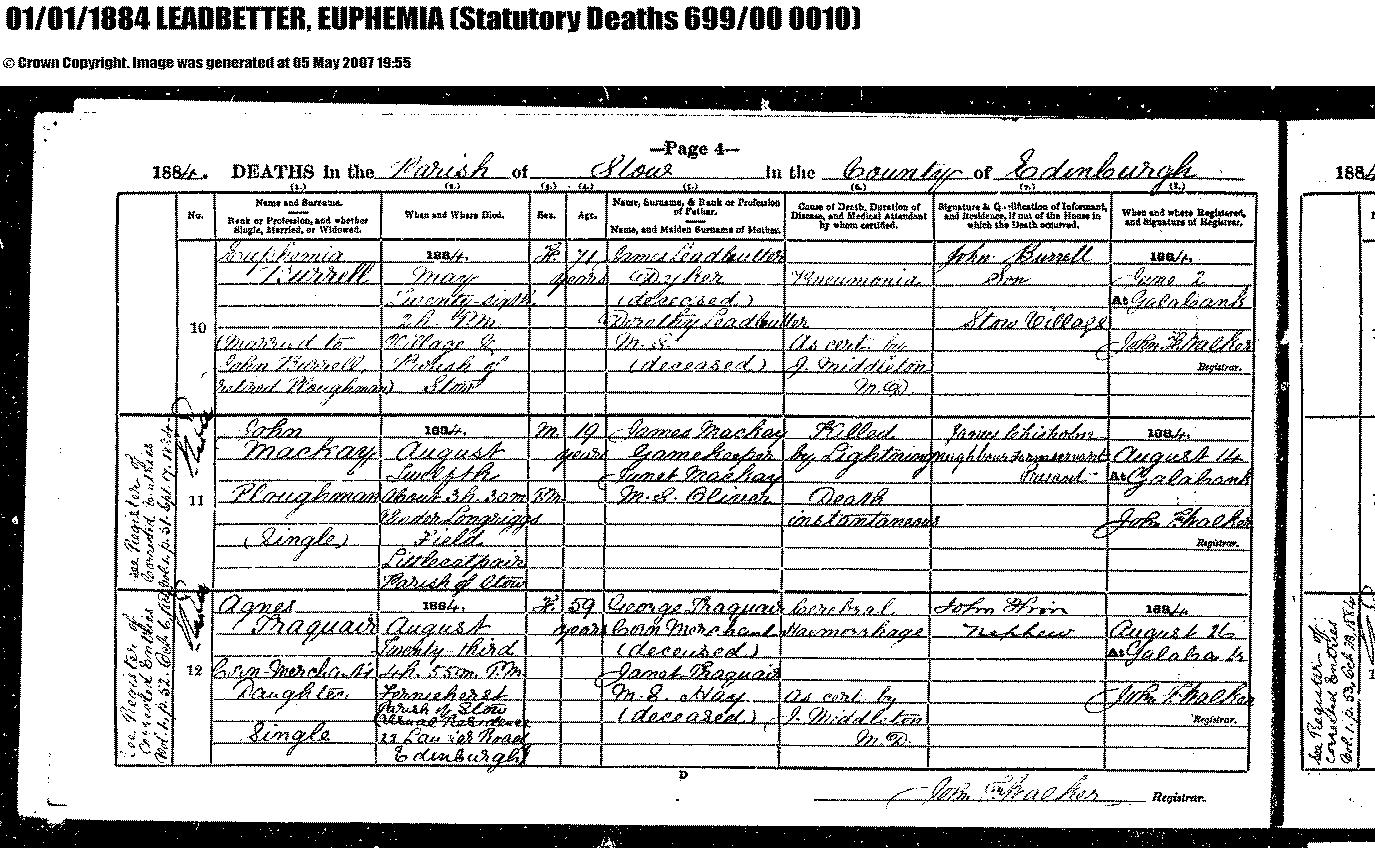 01/01/1884 LEADBETTER, EUPHEMIA (Statutory Deaths 699/00 0010)
© Crown Copyright. Image was generated at 05 May 2007 19:55
—Page 4—
1884. DEATHS in the Parish of Stow in the County of Edinburgh
(1.) (2.) (3.) (4.) (5.) (6.) (7.) (8.)
No.
Name and Surname.
Rank or Profession, and whether
Single, Married, or Widowed.
When and Where Died.
Sex.
Age.
Name, Surname, & Rank or Profession
of Father.
Name, and Maiden Surname of Mother.
Cause of Death, Duration of
Disease, and Medical Attendant
by whom certified.
Signature & Qualification of Informant,
and Residence, if out of the House in
which the Death occurred.
When and where Registered,
and Signature of Registrar.
10
Euphemia
Burrell
(Married to
John Burrell,
retired Ploughman)
1884.
May
Twenty sixth
2h. P.M.
Village &
Parish of
Stow
F.
71
years
James Leadbetter
Dyker
(deceased)
Dorothy Leadbetter
M.S.
(deceased)
Pneumonia
As cert by
J. Middleton
M.D.
John Burrell
Son
Stow Village
1884.
June 2
At Galabank
John Walker
Registrar.
11
John
Mackay
Ploughman
(Single)
1884.
August
Twelfth
About 3h. 30m P.M.
Under Longriggs
Field
Littlecatpair
Parish of Stow
M.
19
years
James Mackay
Gamekeeper
Janet Mackay
M.S. Oliver
Killed
by Lightning
Death
instantaneous
James Chisholm
neighbour farmservant
Present
1884.
August 14
At Galabank
John Walker
Registrar.
see Register of
Corrected Entries
Vol. 1, p. 31. Sept. 17. 1884.
12
Agnes
Traquair
Corn-Merchant's
Daughter
Single
1884.
August
Twenty third
4h. 55m. P.M.
Ferniehirst
Parish of Stow
Usual Residence
23 Lauder Road
Edinburgh
F.
59
years
George Traquair
Corn Merchant
(deceased)
Janet Traquair
M.S. Hay
(deceased)
Cerebral
Haemorrhage
As cert by
J. Middleton
M.D.
John
Nephew
1884.
August 26
At Galabank
John Walker
Registrar.
See Register of
Corrected Entries
Vol. 1, p. 32. Oct. 6.
D
John Walker Registrar.
188
See Register of
Corrected Entries
Vol. 1. p. 33, Oct. 28, 1884